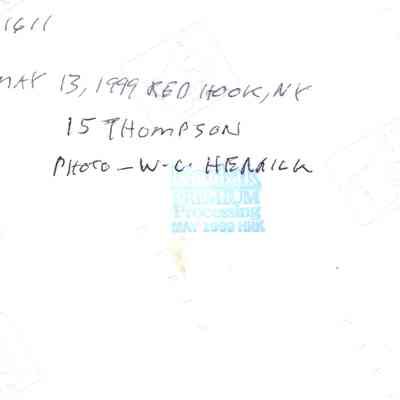 1611
MAY 13, 1999 RED HOOK, NY
15 THOMPSON
PHOTO - W. C. HERRICK
PREMIUM
Processing
MAY 1999 HRK